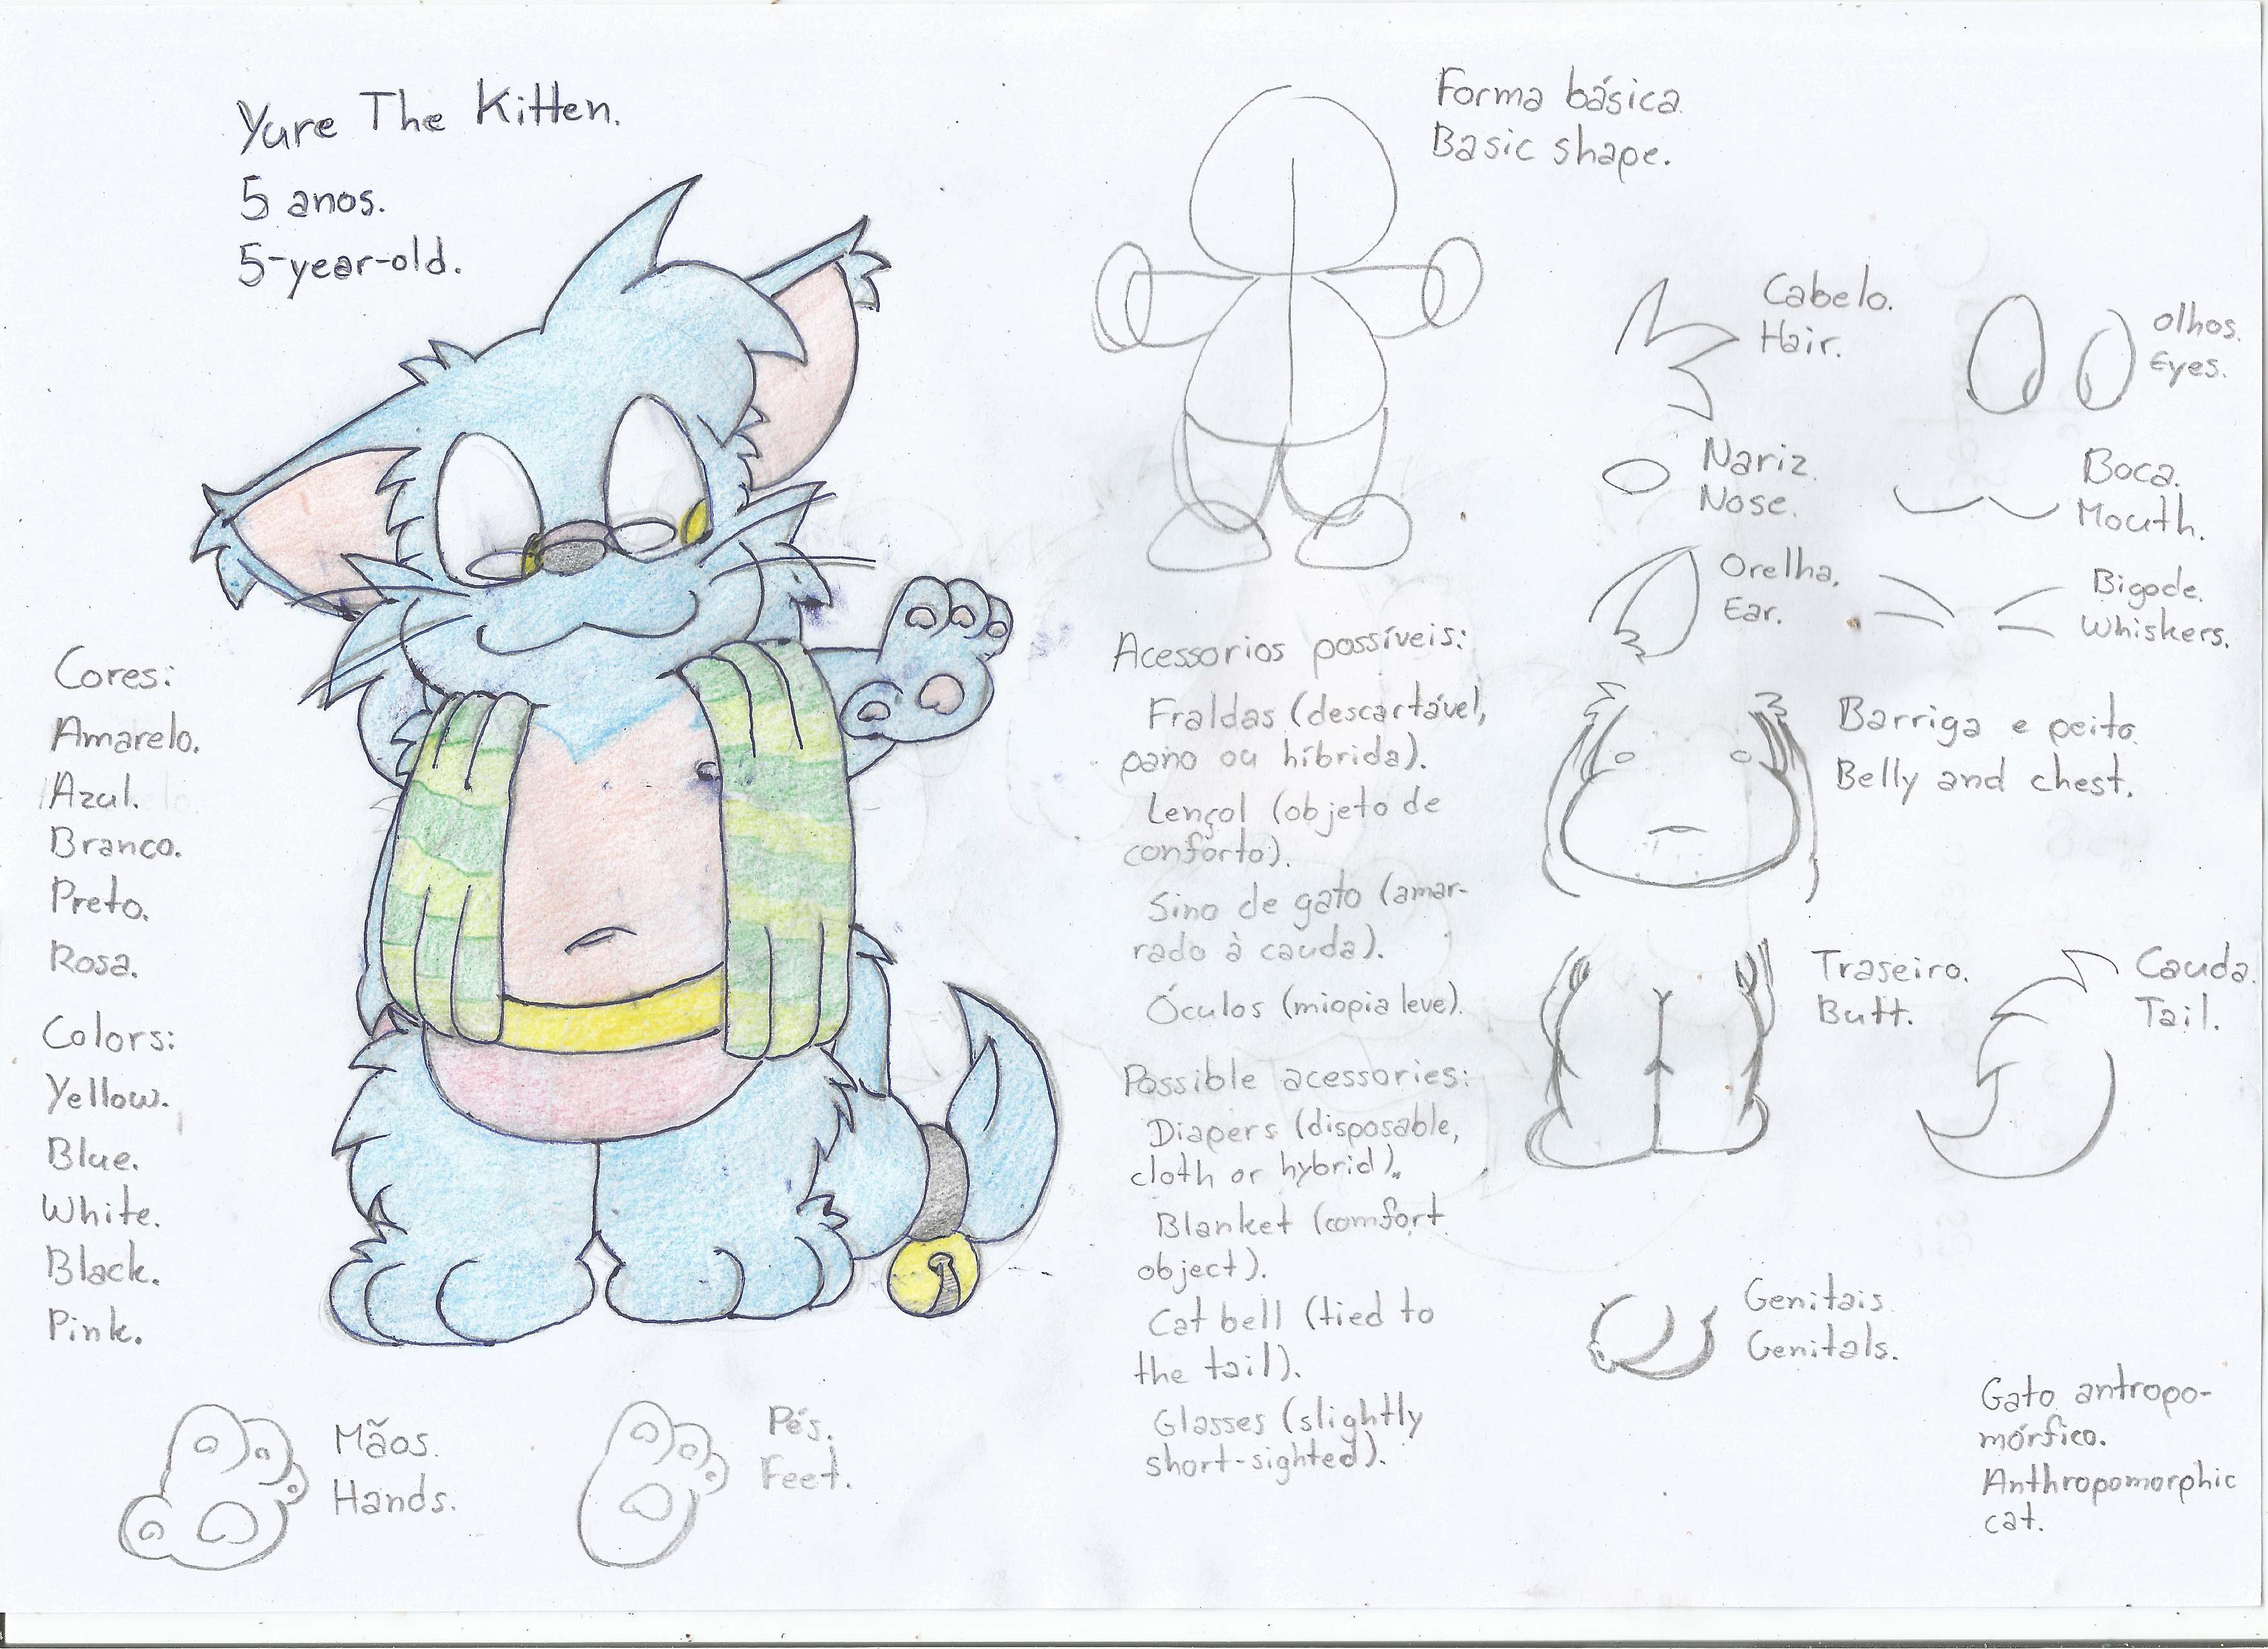 Yure The Kitten.
5 anos.
5-year-old.
Cores:
Amarelo.
Azul.
Branco.
Preto.
Rosa.
Colors:
Yellow.
Blue.
White.
Black.
Pink.
Mãos.
Hands.
Pés.
Feet.
Forma básica.
Basic shape.
Acessorios possíveis:
Fraldas (descartável,
pano ou híbrida).
Lençol (objeto de
conforto).
Sino de gato (amar-
rado à cauda).
Óculos (miopia leve).
Possible acessories:
Diapers (disposable,
cloth or hybrid).
Blanket (comfort
object).
Cat bell (tied to
the tail).
Glasses (slightly
short-sighted).
Cabelo.
Hair.
olhos.
Eyes.
Nariz.
Nose.
Boca.
Mouth.
Orelha.
Ear.
Bigode.
Whiskers.
Barriga e peito.
Belly and chest.
Traseiro.
Butt.
Cauda.
Tail.
Genitais
Genitals.
Gato antropo-
mórfico.
Anthropomorphic
cat.